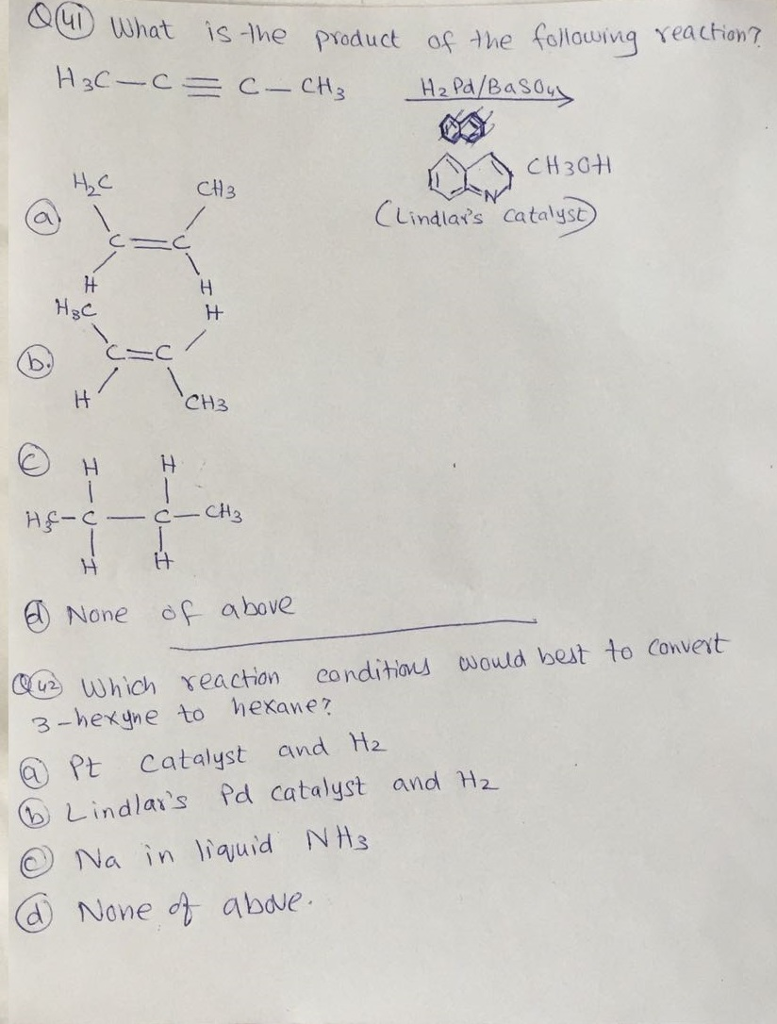 Q 41 What is the product of the following reaction?
H3C—C≡C—CH3 H2 Pd/BaSO4
N CH3OH
(Lindlar's catalyst)
a H2C CH3
C=C
H H
b. H3C H
C=C
H CH3
c H H
H3C—C—C—CH3
H H
d None of above
Q 42 Which reaction conditions would best to convert
3-hexyne to hexane?
a Pt Catalyst and H2
b Lindlar's Pd catalyst and H2
c Na in liquid NH3
d None of above.